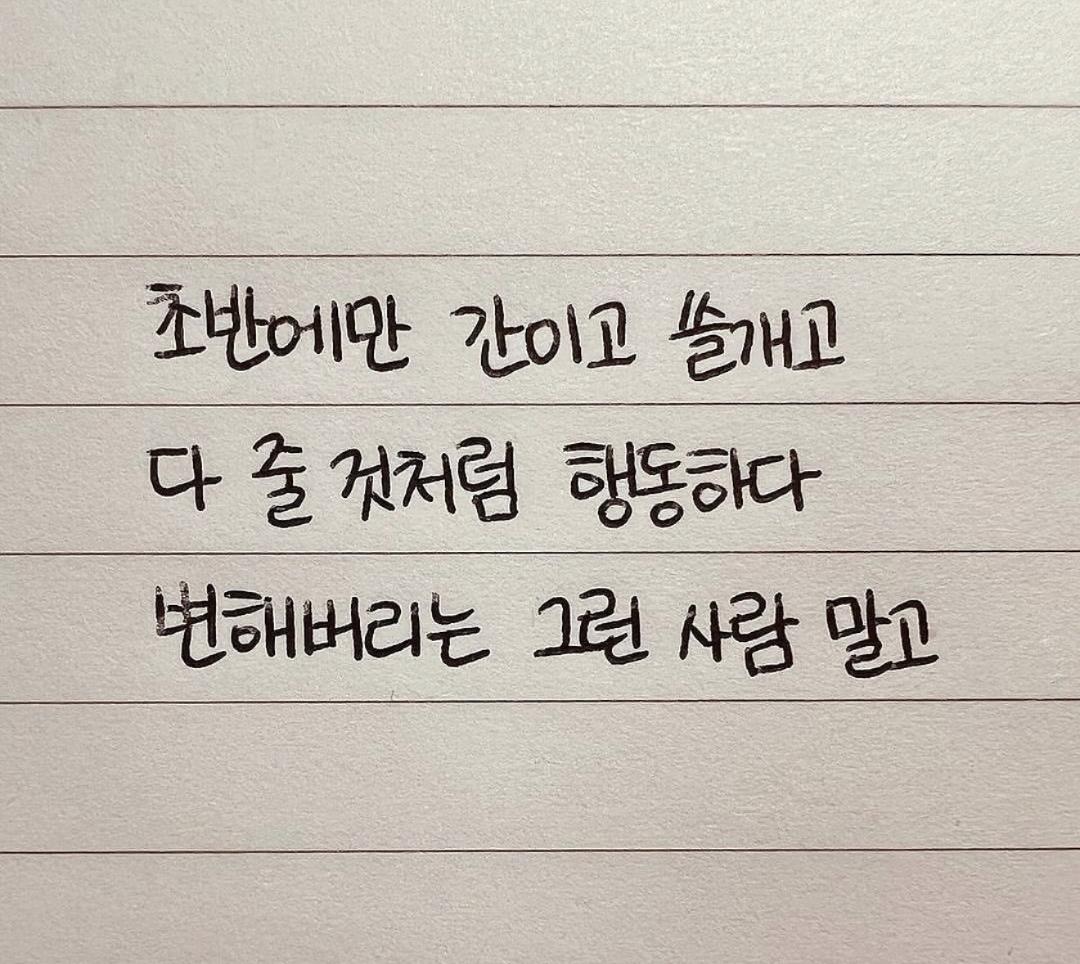 초반에만 간이고 쓸개고
다 줄 것처럼 행동하다
변해버리는 그런 사람 말고